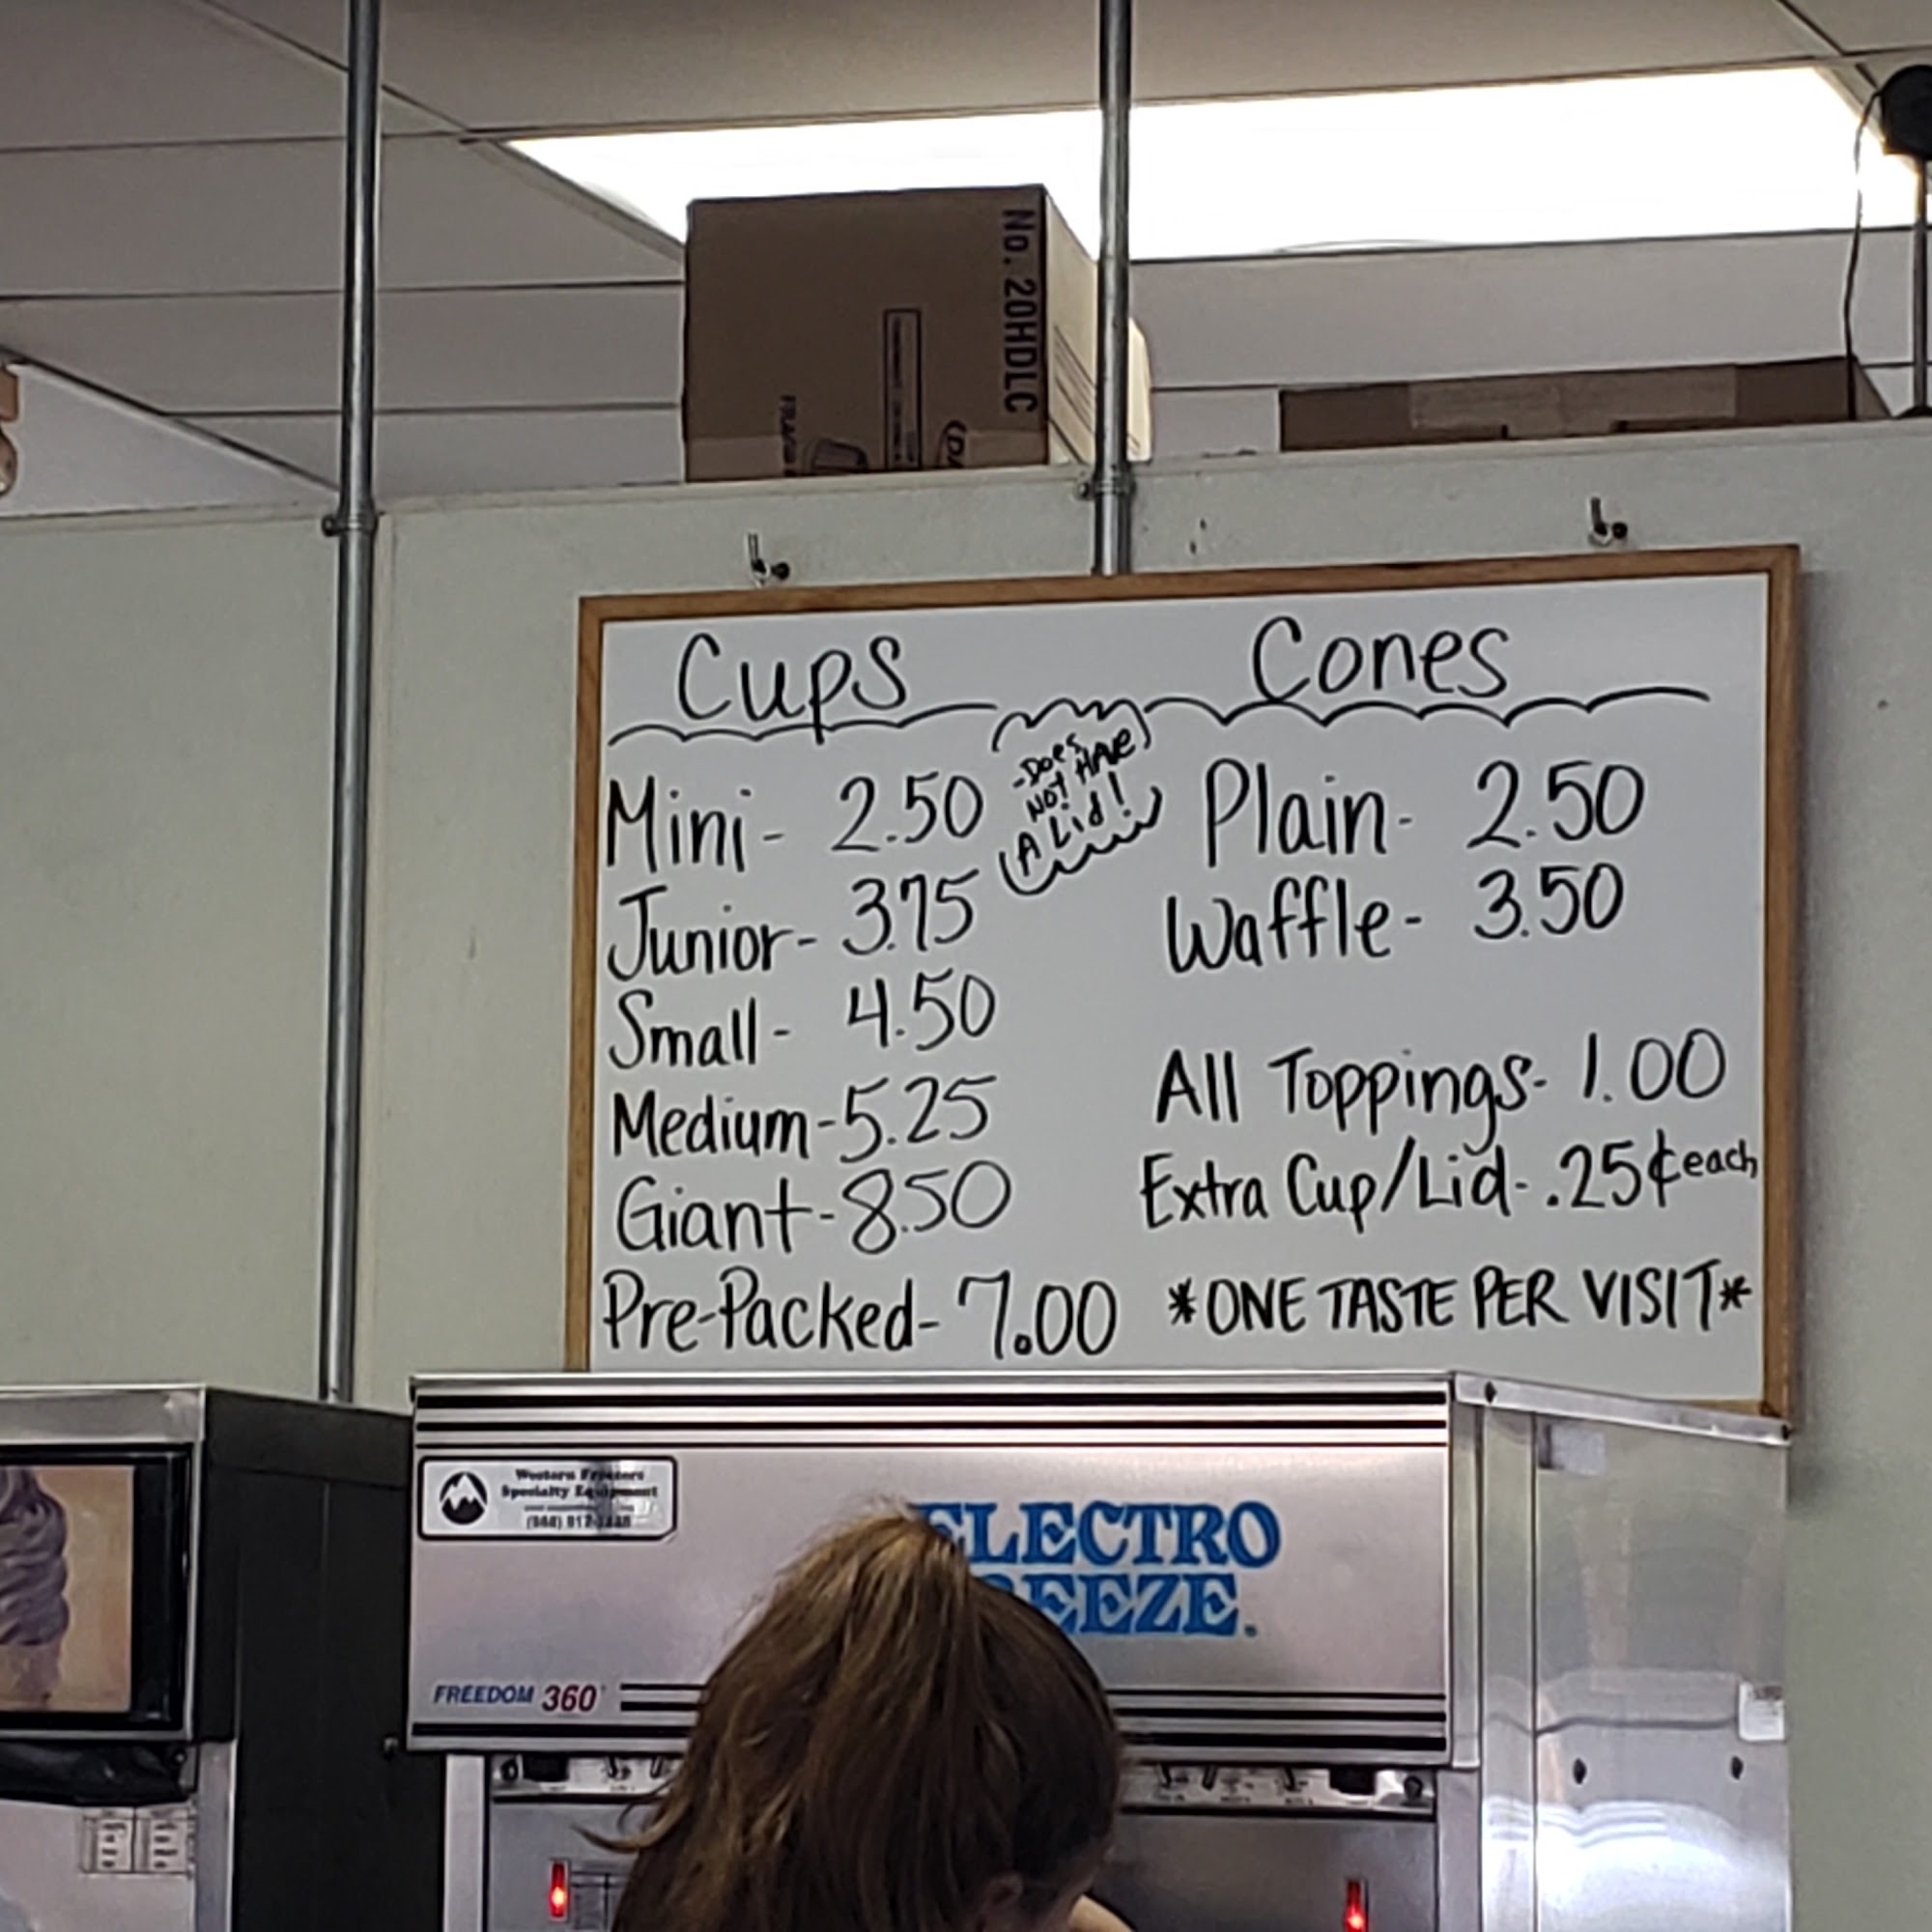 No. 20HDLC
FRAGI
Cups
Cones
Mini - 2.50
-Does
NOT HAVE
A Lid!
Plain - 2.50
Junior - 3.75
Waffle - 3.50
Small - 4.50
Medium - 5.25
All Toppings - 1.00
Giant - 8.50
Extra Cup/Lid - .25¢ each
Pre-Packed - 7.00
*ONE TASTE PER VISIT*
Western Freezers
Specialty Equipment
ELECTRO
EEZE.
FREEDOM 360